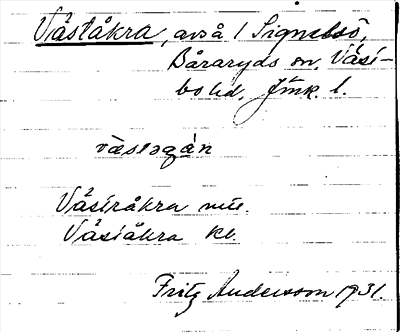 Våståkra, avs. / Signebsö,
Båraryds sn, Väst-
bo hd. Jmk. l.
västəgån
Västråkra mtl.
Väståkra kl.
Fritz Andersson 1931.